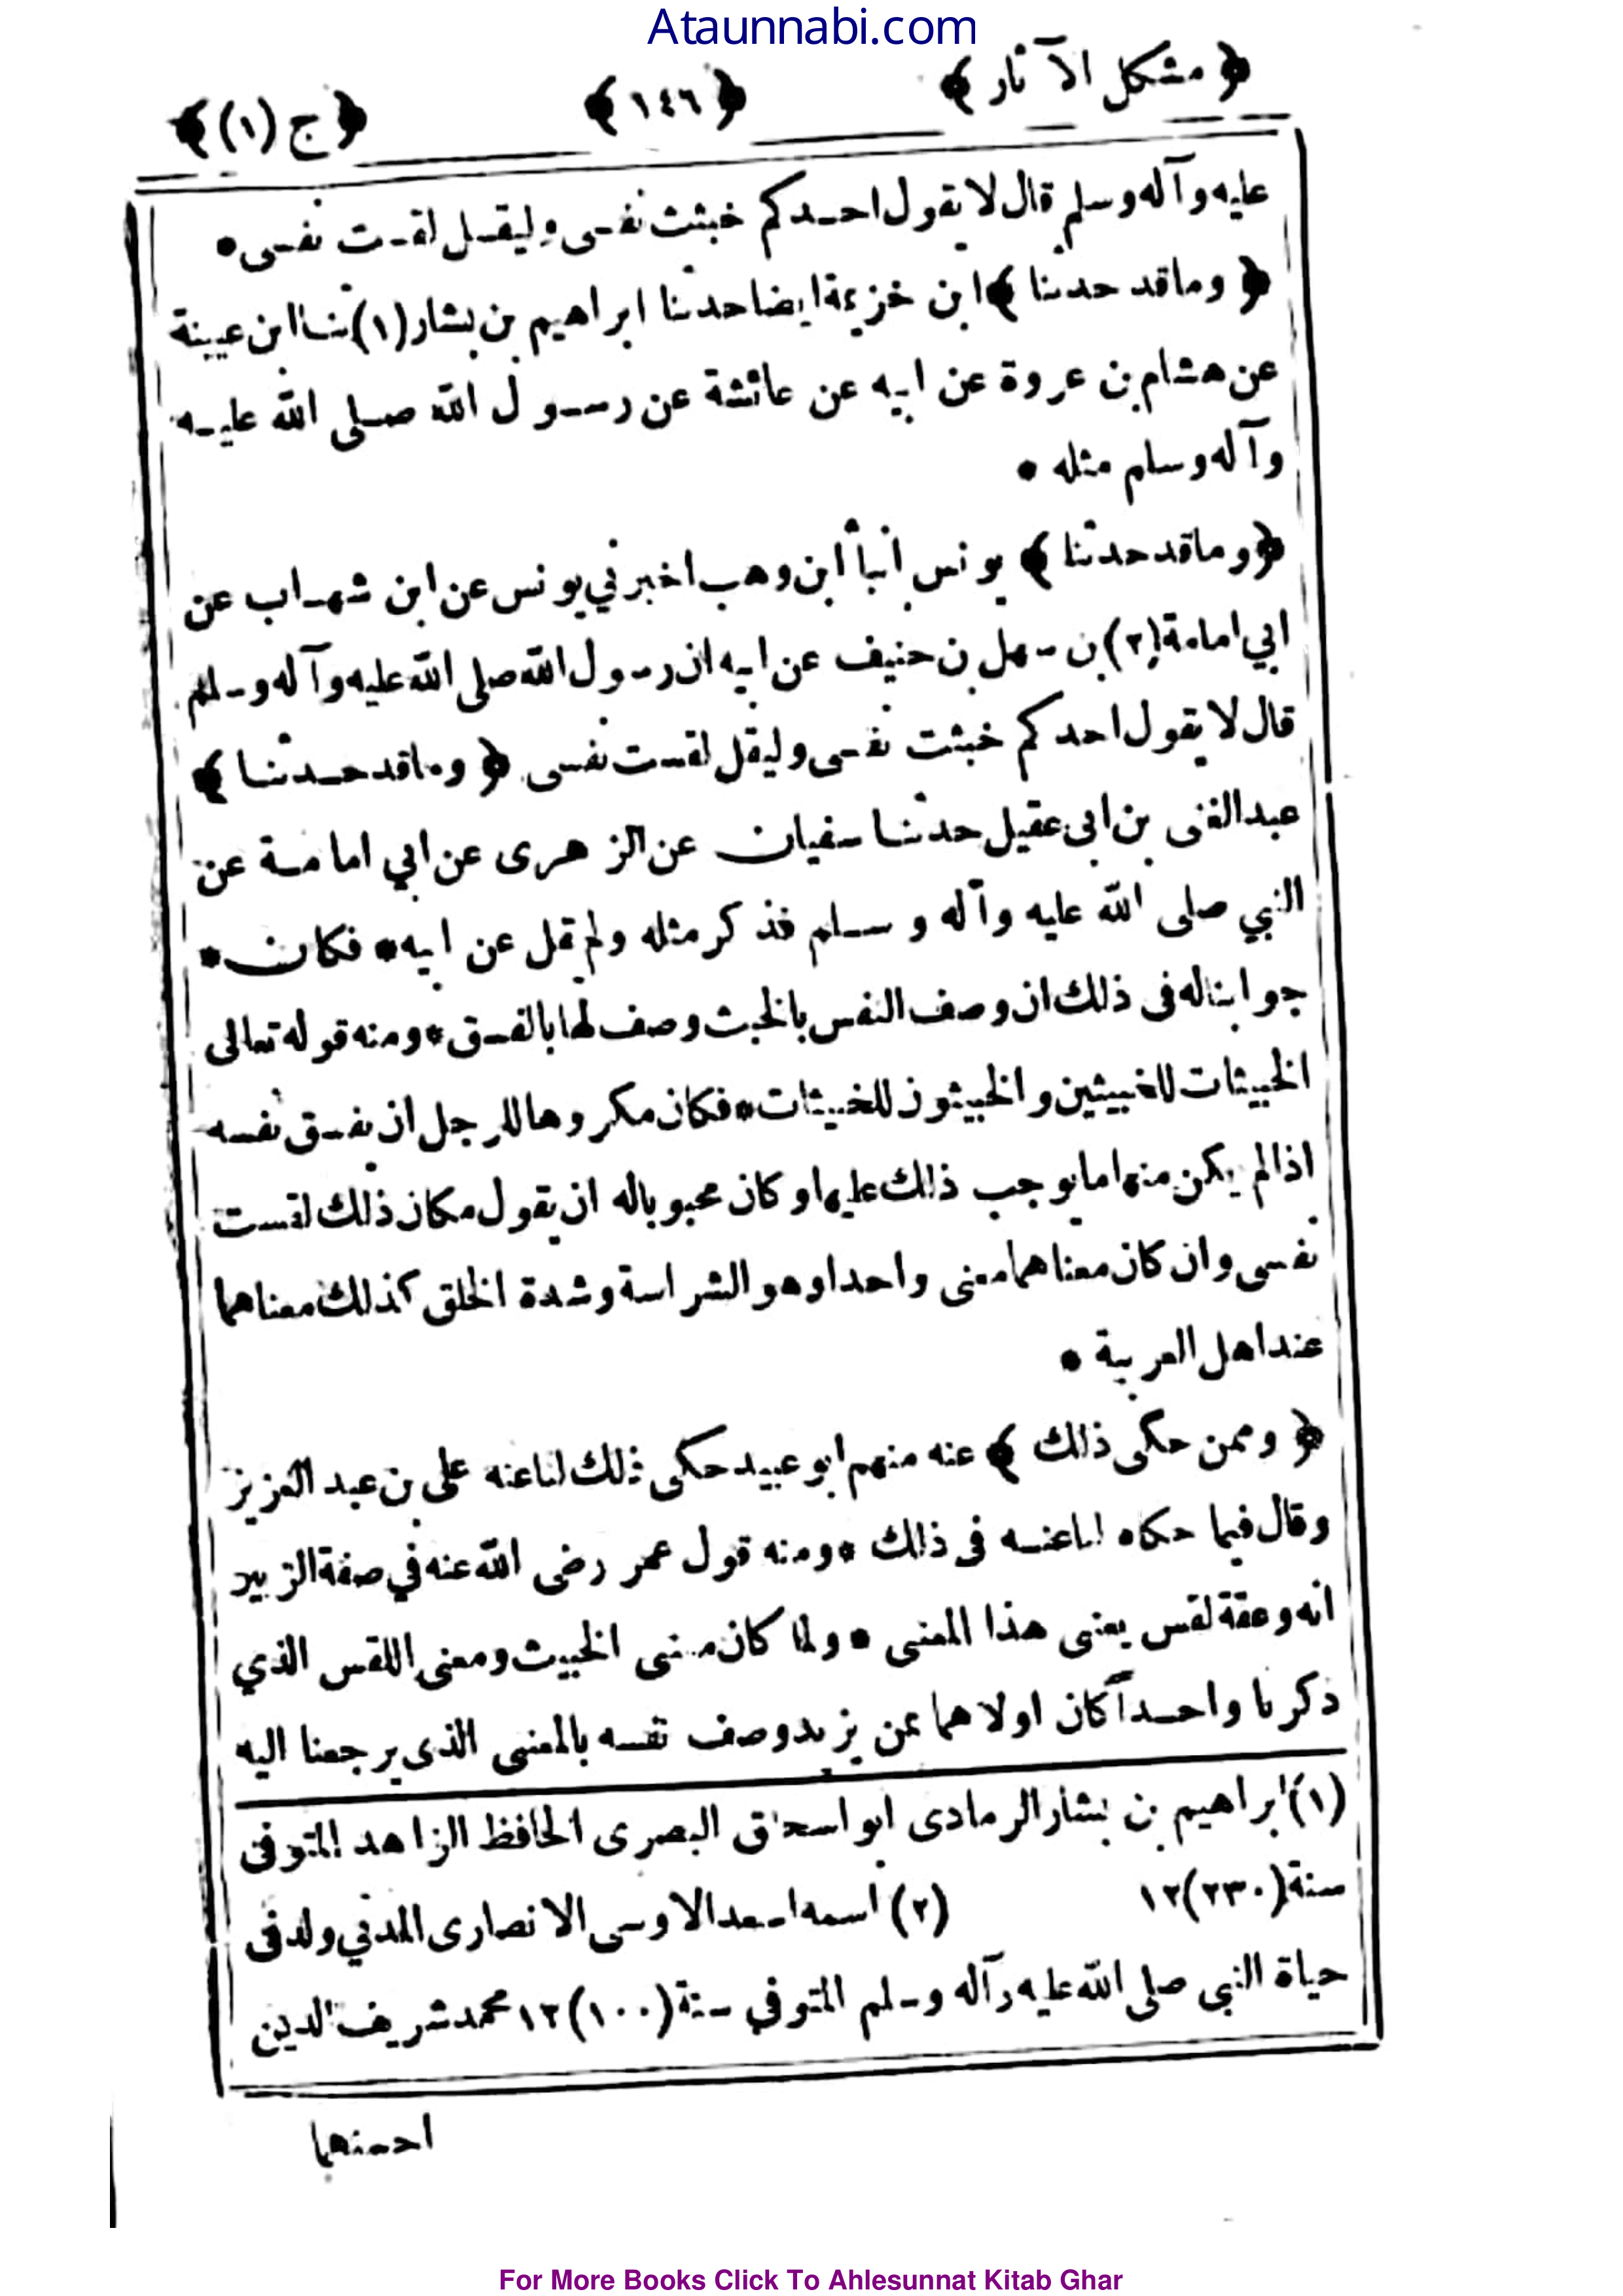 Ataunnabi.com
﴿ مشكل الآثار ﴾ ﴿ ١٤٦ ﴾ ﴿ ج (١) ﴾
عليه وآله وسلم قال لا يقول احدكم خبثت نفسى وليقل لقست نفسى •
﴿ وما قد حدثنا ﴾ ابن خزيمة ايضا حدثنا ابراهيم بن بشار (١) ثنا ابن عيينة
عن هشام بن عروة عن ابيه عن عائشة عن رسول الله صلى الله عليه
وآله وسلم مثله •
﴿ وما قد حدثنا ﴾ يونس انبأ ابن وهب اخبرني يونس عن ابن شهاب عن
ابي امامة (٢) بن سهل بن حنيف عن ابيه ان رسول الله صلى الله عليه وآله وسلم
قال لا يقول احدكم خبثت نفسى وليقل لقست نفسى ﴿ وما قد حدثنا ﴾
عبد الغنى بن ابى عقيل حدثنا سفيان عن الزهرى عن ابي امامة عن
النبي صلى الله عليه وآله وسلم فذكر مثله ولم يقل عن ابيه • فكان •
جوابنا له فى ذلك ان وصف النفس بالخبث وصف لها بالفسق • ومنه قوله تعالى
الخبيثات للخبيثين والخبيثون للخبيثات • فكان مكروها للرجل ان يفسق نفسه
اذا لم يكن منها ما يوجب ذلك عليها وكان محبوبا له ان يقول مكان ذلك لقست
نفسى وان كان معناهما معنى واحدا وهو الشراسة وشدة الخلق كذلك معناهما
عند اهل العربية •
﴿ وممن حكى ذلك ﴾ عنه منهم ابو عبيد حكى ذلك لنا عنه على بن عبد العزيز
وقال فيما حكاه لنا عنه فى ذلك • ومنه قول عمر رضى الله عنه في صفة الزبير
انه وعقة لقس يعنى هذا المعنى • ولما كان معنى الخبيث ومعنى اللقس الذي
ذكرنا واحدآ كان اولاهما بمن يريد وصف نفسه بالمعنى الذى يرجعنا اليه
(١) ابراهيم بن بشار الرمادى ابو اسحاق البصرى الحافظ الزاهد المتوفى
سنة (٢٣٠) ١٢ (٢) اسمه اسعد الاوسى الانصارى المدني ولد فى
حياة النبي صلى الله عليه وآله وسلم المتوفي سنة (١٠٠) ١٢ محمد شريف الدين
احسنهما
For More Books Click To Ahlesunnat Kitab Ghar